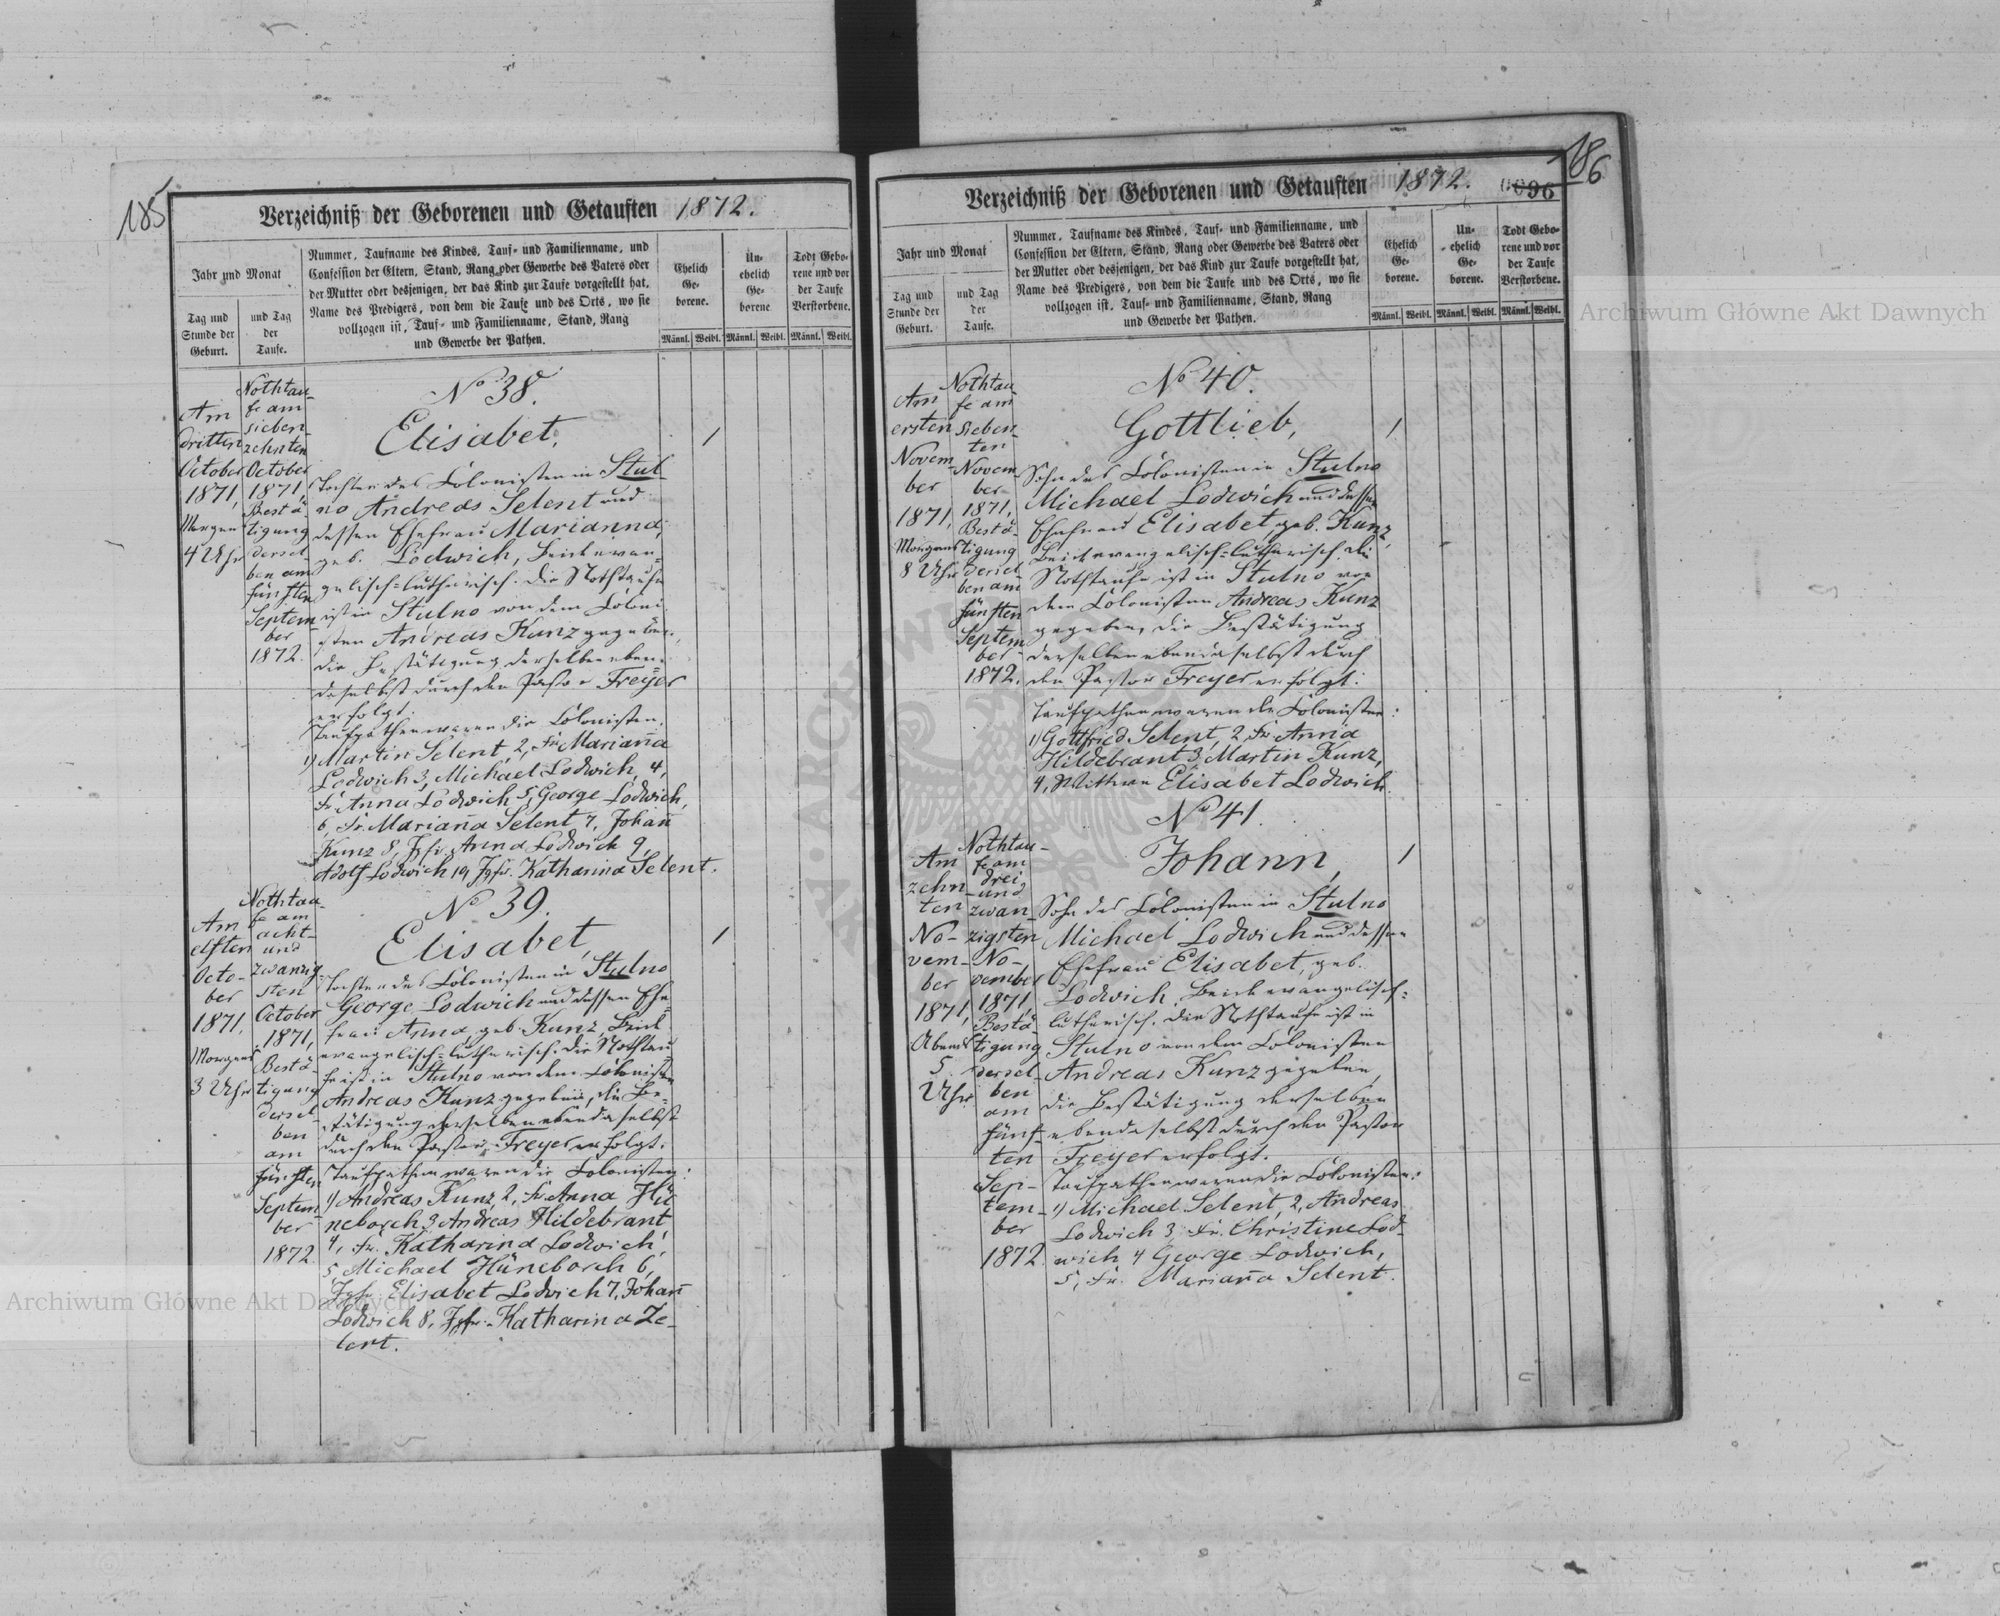 185
Verzeichniß der Geborenen und Getauften 1872.
Jahr und Monat
Tag und
Stunde der
Geburt.
und Tag
der
Taufe.
Nummer, Taufname des Kindes, Tauf- und Familienname, und
Confession der Eltern, Stand, Rang oder Gewerbe des Vaters oder
der Mutter oder desjenigen, der das Kind zur Taufe vorgestellt hat,
Name des Predigers, von dem die Taufe und des Orts, wo sie
vollzogen ist, Tauf- und Familienname, Stand, Rang
und Gewerbe der Pathen.
Ehelich
Ge-
borene.
Un-
ehelich
Ge-
borene
Todt Gebo-
rene und vor
der Taufe
Verstorbene.
Männl. Weibl. Männl. Weibl. Männl. Weibl.
Am
dritten
October
1871,
Morgens
4 Uhr
Nothtau-
fe am
sieben-
zehnten
October
1871,
Bestä-
tigung
dersel-
ben am
fünften
Septem-
ber
1872.
No 38.
Elisabet,
Tochter des Colonisten in Stul-
no Andreas Selent und
dessen Ehefrau Marianna,
geb. Lodwich, Beide evan-
gelisch-lutherisch. Die Nothtaufe
ist in Stulno von dem Coloni-
sten Andreas Kunz gegeben,
die Bestätigung derselben eben-
daselbst durch den Pastor Freyer
erfolgt.
Taufpathen waren die Colonisten:
1, Martin Selent, 2, Fr. Mariana
Lodwich 3, Michael Lodwich, 4,
Fr. Anna Lodwich 5, George Lodwich,
6, Fr. Mariana Selent 7, Johan
Kunz 8, Jgfr. Anna Lodwich 9,
Adolf Lodwich 10, Jgfr. Katharina Selent.
Am
elften
Octo-
ber
1871,
Morgens
3 Uhr
Nothtau-
fe am
acht-
und
zwanzig-
sten
October
1871,
Bestä-
tigung
dersel-
ben
am
fünften
Septem-
ber
1872.
No 39.
Elisabet,
Tochter des Colonisten in Stulno
George Lodwich und dessen Ehe-
frau Anna, geb. Kunz, Beide
evangelisch-lutherisch. Die Nothtau-
fe ist in Stulno von dem Colonisten
Andreas Kunz gegeben, die Be-
stätigung derselben ebendaselbst
durch den Pastor Freyer erfolgt.
Taufpathen waren die Colonisten:
1, Andreas Kunz, 2, Fr. Anna Hü-
neborch 3, Andreas Hildebrant
4, Fr. Katharina Lodwich,
5, Michael Hüneborch 6,
Jgfr. Elisabet Lodwich 7, Johan
Lodwich 8, Jgfr. Katharina Ze-
lent.
186
0096
Verzeichniß der Geborenen und Getauften 1872.
Jahr und Monat
Tag und
Stunde der
Geburt.
und Tag
der
Taufe.
Nummer, Taufname des Kindes, Tauf- und Familienname, und
Confession der Eltern, Stand, Rang oder Gewerbe des Vaters oder
der Mutter oder desjenigen, der das Kind zur Taufe vorgestellt hat,
Name des Predigers, von dem die Taufe und des Orts, wo sie
vollzogen ist, Tauf- und Familienname, Stand, Rang
und Gewerbe der Pathen.
Ehelich
Ge-
borene.
Un-
ehelich
Ge-
borene.
Todt Gebo-
rene und vor
der Taufe
Verstorbene.
Männl. Weibl. Männl. Weibl. Männl. Weibl.
Am
ersten
Novem-
ber
1871,
Morgens
8 Uhr
Nothtau-
fe am
sieben-
ten
Novem-
ber
1871,
Bestä-
tigung
dersel-
ben am
fünften
Septem-
ber
1872.
No 40.
Gottlieb,
Sohn des Colonisten in Stulno
Michael Lodwich und dessen
Ehefrau Elisabet, geb. Kunz,
Beide evangelisch-lutherisch. Die
Nothtaufe ist in Stulno von
dem Colonisten Andreas Kunz
gegeben, die Bestätigung
derselben ebendaselbst durch
den Pastor Freyer erfolgt.
Taufpathen waren die Colonisten:
1, Gottfried Selent, 2, Fr. Anna
Hildebrant 3, Martin Kunz,
4, Wittwe Elisabet Lodwich.
Am
zehn-
ten
No-
vem-
ber
1871,
Abends
5
Uhr
Nothtau-
fe am
drei
und
zwan-
zigsten
No-
vember
1871,
Bestä-
tigung
dersel-
ben
am
fünf-
ten
Sep-
tem-
ber
1872.
No 41.
Johann,
Sohn des Colonisten in Stulno
Michael Lodwich und dessen
Ehefrau Elisabet, geb.
Lodwich, Beide evangelisch-
lutherisch. Die Nothtaufe ist in
Stulno von dem Colonisten
Andreas Kunz gegeben,
die Bestätigung derselben
ebendaselbst durch den Pastor
Freyer erfolgt.
Taufpathen waren die Colonisten:
1, Michael Selent, 2, Andreas
Lodwich 3, Fr. Christine Lod-
wich 4, George Lodwich,
5, Fr. Mariana Selent.
Archiwum Główne Akt Dawnych
Archiwum Główne Akt Dawnych